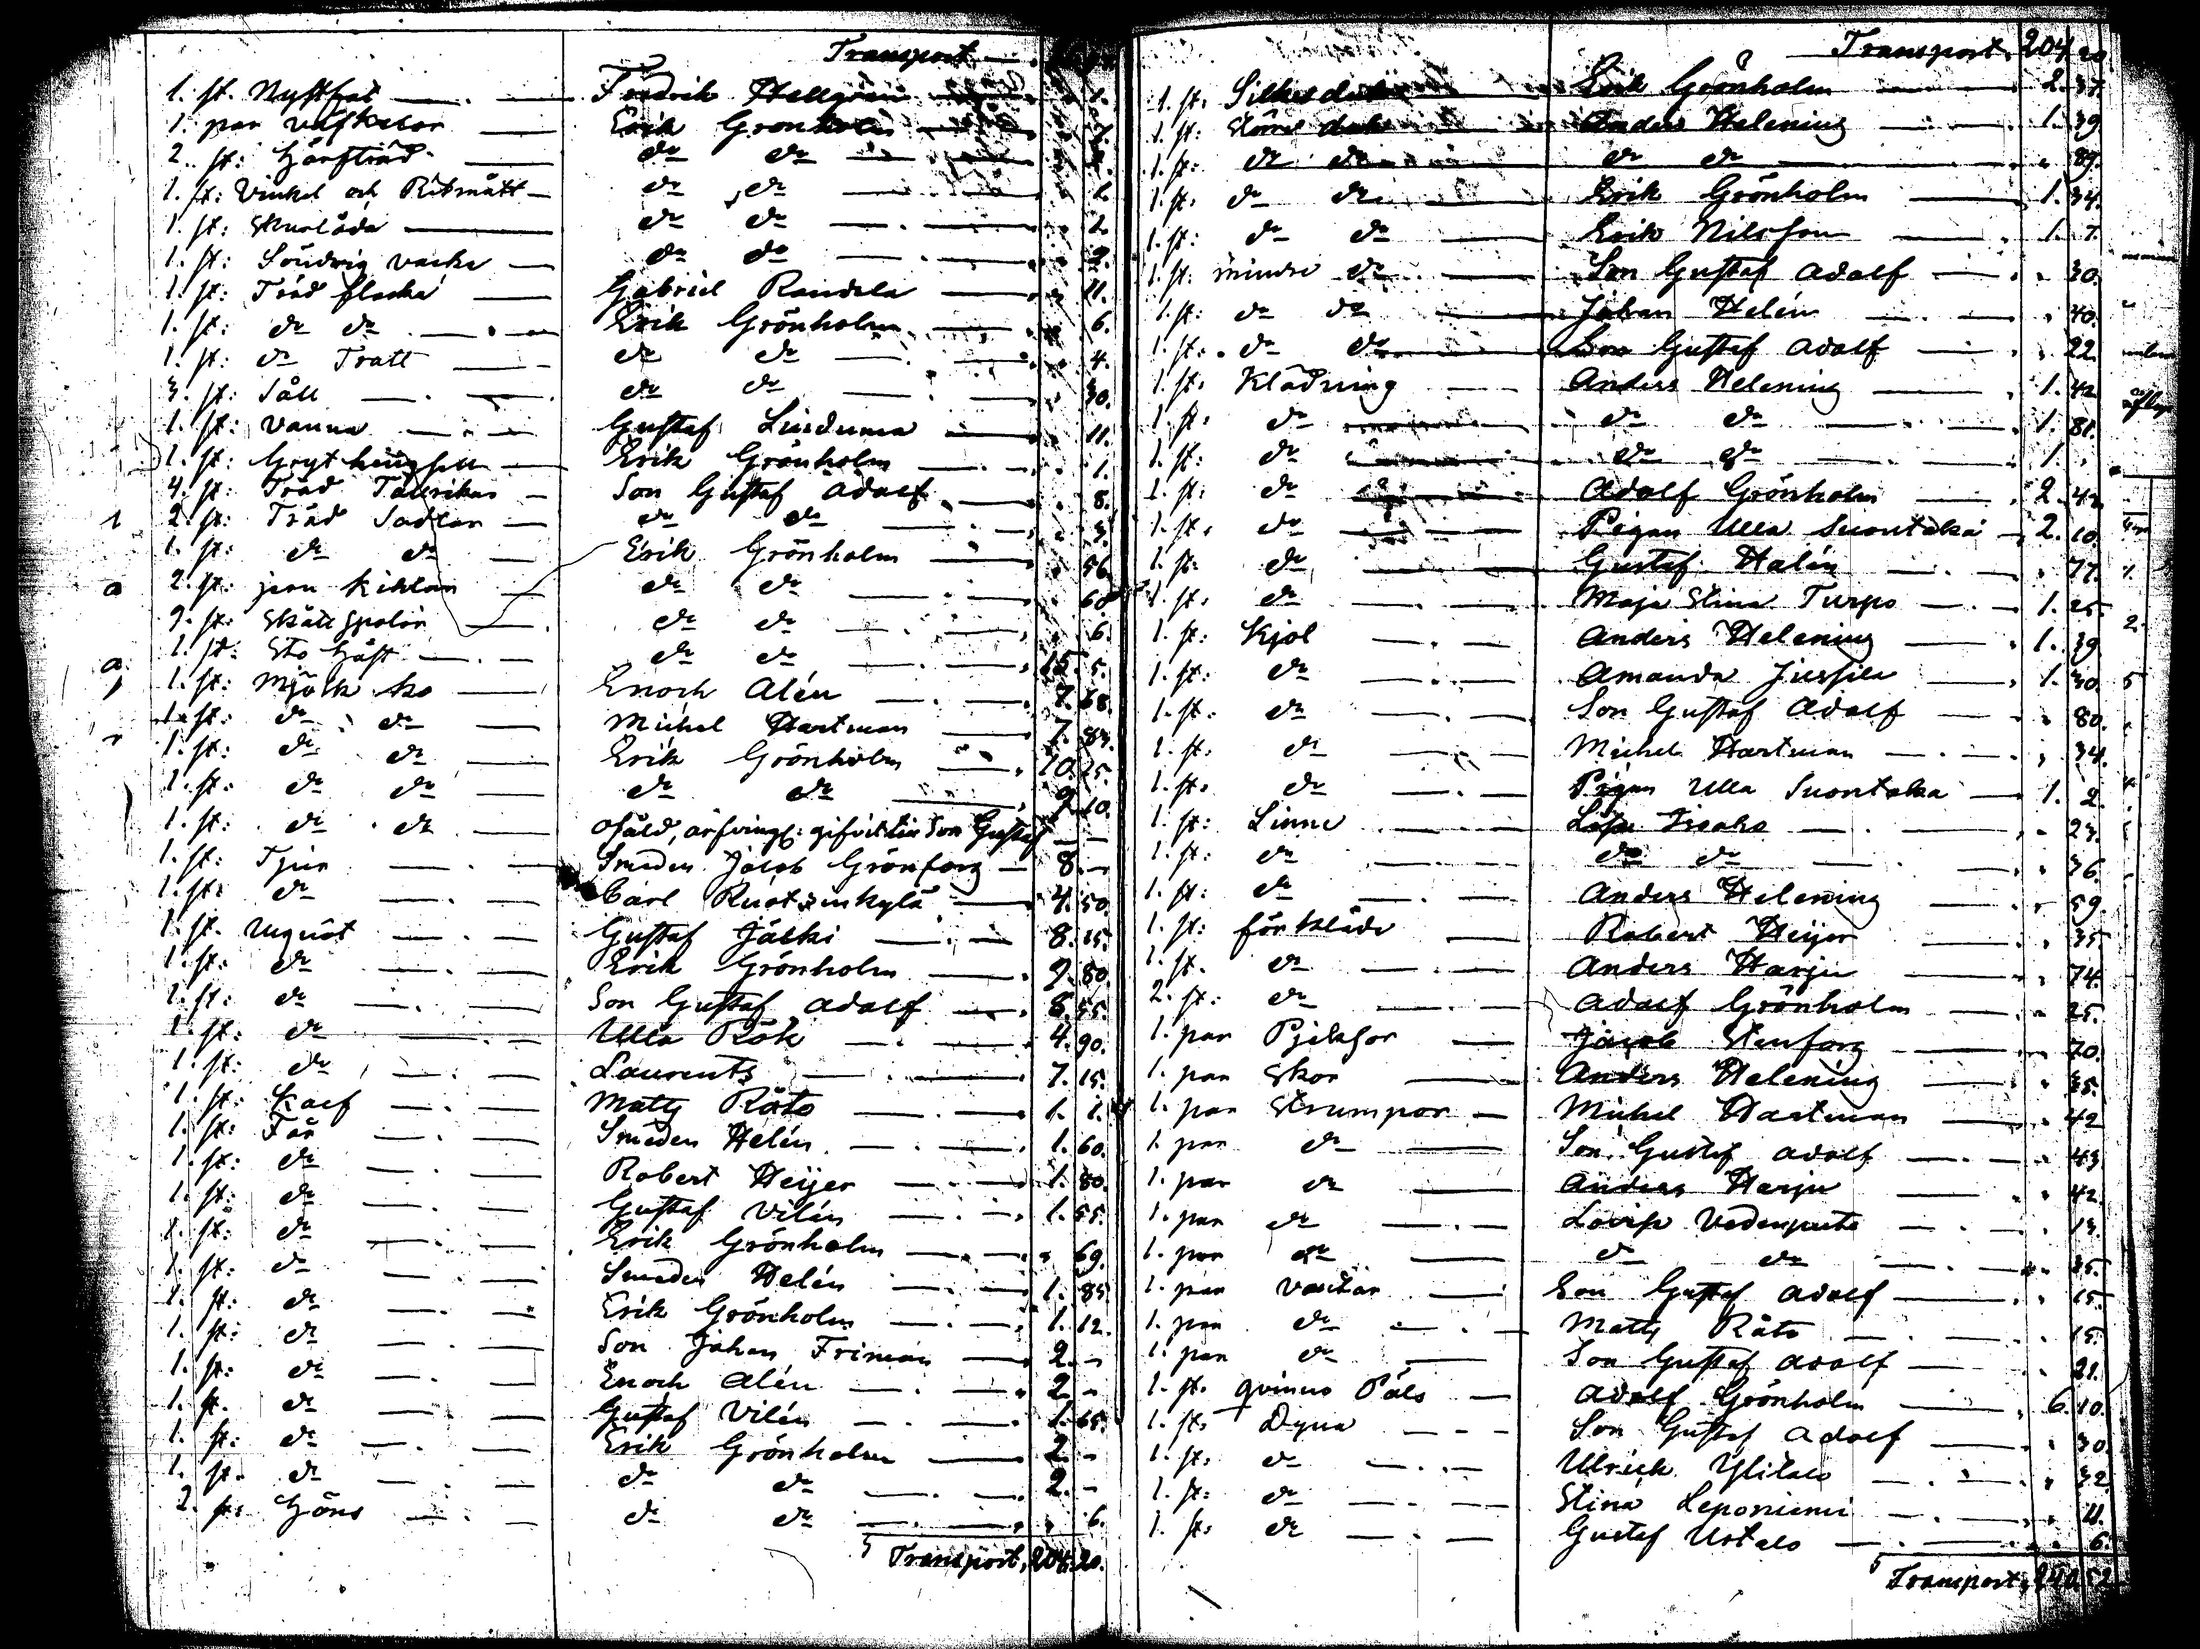 Transport
1. st. Nystfat Fredrik Hellgren 1.
1. par Erik Grönholm
2. st: do do
1. st: Vinkel och Ritmått do do 1.
1. st: Skurlåda do do 2.
1. st: do do 2.
1. st: Träd flaska Gabriel Randela 11.
1. st: do do Erik Grönholm 6.
1. st: do Tratt do do 4.
3. st: Såll do do 30.
1. st: Vanna Gustaf Linduma 11.
1. st: Erik Grönholm 1.
4. st: Träd Tallrikar Son Gustaf Adolf 8.
2. st: Träd do do 3.
1. st: do do Erik Grönholm 56.
2. st: do do 60
9. st: do do 6.
1. st: Sto häst do do 15. 5.
1. st: Mjölk ko Enoch Alén 7. 68.
1. st: do do Mickel Hartman 7. 83.
1. st: do do Erik Grönholm 10. 25.
1. st: do do do do 9 10.
1. st: do do osåld, Son Gustaf
1. st: Tjur Smeden Jakob Grönforg 8 -
1. st: do Carl 4. 50.
1. st. Ungnöt Gustaf Jälki 8. 15.
1. st: do Erik Grönholm 9. 80.
1. st: do Son Gustaf Adolf 8. 55.
1. st: do Ulla Rök 4. 90.
1. st: do Laurents 7. 15.
1. st: Kalf Matts Räto 1. 1.
1. st: Får Smeden Helén 1. 60.
1. st: do Robert Heijer 1. 80.
1. st: do Gustaf Vilén 1. 55.
1. st: do Erik Grönholm 69.
1. st: do Smeden Helén 1. 85
1. st: do Erik Grönholm 1. 12.
1. st: do Son Johan Friman 2. -
1. st: do Enoch Alén 2 -
1. st. do Gustaf Vilén 1. 65.
1. st: do Erik Grönholm 2 -
1. st. do do do 2. -
2. st: Höns do do 6.
Transport, 204. 20.
Transport, 204 20
1. st. Silkesduk Erik Grönholm 2. 37.
1. st: Större duk Anders Helening 1. 39
1. st: do do do do 89.
1. st. do do Erik Grönholm 1. 34.
1. st: do do Erik Nilsson 1. 7.
1. st: mindre do Son Gustaf Adolf 30.
1. st: do do Johan Helén 40.
1. st: do do Son Gustaf Adolf 22.
1. st: Klädning Anders Helening 1. 42
1. st. do do do 1. 81.
1. st: do do do 1.
1. st: do Adolf Grönholm 2. 42.
1. st. do Pigan Ulla Suontaka 2. 10.
1. st. do Gustaf Halén 77.
1. st. do Maja Stina Turpo 1. 25
1. st: Kjol Anders Helening 1. 39
1. st: do Amanda Jussila 1. 30.
1. st. do Son Gustaf Adolf 80.
1. st. do Mickel Hartman 34.
1. st. do Pigan Ulla Suontaka 1. 2.
1. st: Linne 23.
1. st: do do do 36.
1. st: do Anders Helening 59.
1. st: förkläde Robert Heijer 35
1. st. do Anders Harju 74.
2. st: do Adolf Grönholm 25.
1. par Jacob Stenforg 70.
1. par Skor Anders Helening 35.
1. par Strumpor Mickel Hartman 42
1. par do Son Gustaf Adolf 43
1. par do Anders Harju 42.
1. par do Lovisa 13.
1. par do do do 25.
1. par Vantar Son Gustaf Adolf 15.
1. par do Matts Räto 15.
1. par do Son Gustaf Adolf 21.
1. st. qvinno Päls Adolf Grönholm 6. 10.
1. st. Dyna Son Gustaf Adolf 30.
1. st. do Ulrick Ylitalo 32.
1. st: do Stina Leponiemi 11.
1. st. do Gustaf Ustalo 6.
Transport,